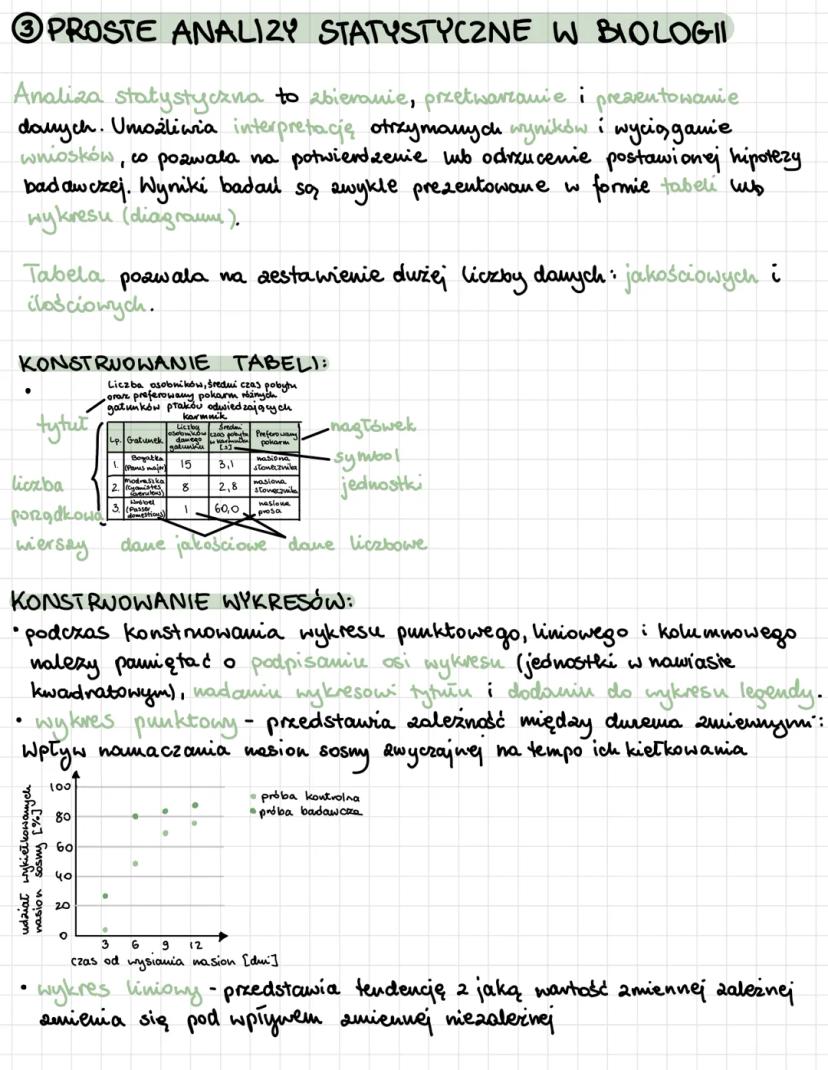 ③ PROSTE ANALIZY STATYSTYCZNE W BIOLOGII
Analiza statystyczna to zbieranie, przetwarzanie i prezentowanie
danych. Umożliwia interpretację otrzymanych wyników i wyciąganie
wniosków, co pozwala na potwierdzenie lub odrzucenie postawionej hipotezy
badawczej. Wyniki badań są zwykle prezentowane w formie tabeli lub
wykresu (diagramu).
Tabela pozwala na zestawienie dużej liczby danych: jakościowych i
ilościowych.
KONSTRUOWANIE TABELI:
• Liczba osobników, średni czas pobytu
oraz preferowany pokarm różnych
gatunków ptaków odwiedzających
karmnik
tytuł
Lp. Gatunek Liczba osobników danego gatunku Średni czas pobytu w karmniku [s] Preferowany pokarm
1. Bogatka (Parus major) 15 3,1 nasiona słonecznika
2. Modraszka (Cyanistes caeruleus) 8 2,8 nasiona słonecznika
3. Wróbel (Passer domesticus) 1 60,0 nasiona prosa
nagłówek
symbol
jednostki
liczba
porządkowa
wierszy dane jakościowe dane liczbowe
KONSTRUOWANIE WYKRESÓW:
• podczas konstruowania wykresu punktowego, liniowego i kolumnowego
należy pamiętać o podpisaniu osi wykresu (jednostki w nawiasie
kwadratowym), nadaniu wykresowi tytułu i dodaniu do wykresu legendy.
• wykres punktowy - przedstawia zależność między dwiema zmiennymi:
Wpływ namaczania nasion sosny zwyczajnej na tempo ich kiełkowania
udział wykiełkowanych
nasion sosny [%]
100
80
60
40
20
0
3 6 9 12
czas od wysiania nasion [dni]
próba kontrolna
próba badawcza
• wykres liniowy - przedstawia tendencję z jaką wartość zmiennej zależnej
zmienia się pod wpływem zmiennej niezależnej